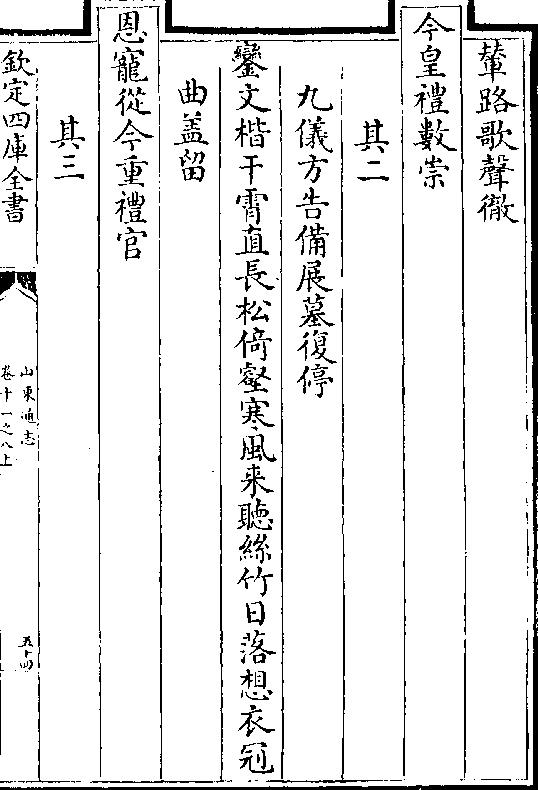 輦路歌聲徹
今皇禮數崇
其二
九儀方告備展墓復停
鑾文楷干霄直長松倚壑寒風来聽絲竹日落想衣冠
曲盖留
恩寵從今重禮官
其三
欽定四庫全書
山東通志
卷十一之八上
五十四